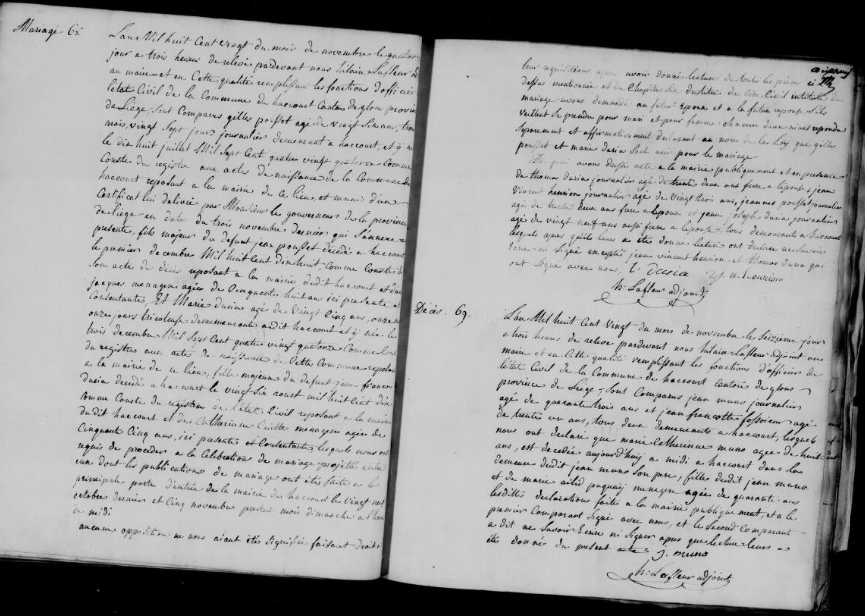 Mariage. 6
L'an Mil huit Cent vingt du mois de novembre le
jour a trois heures de relevé pardevant nous hilain Lafleur
au maire et en Cette qualité remplissant les fonctions d'officier
l'état Civil de la Commune de haccourt Canton de glons province
de Liege, sont Comparus gilles pousset agé de vingt Six ans, trois
mois, vingt Sept jours journalier demeurant a haccourt, et y né
le dix huit juillet Mil Sept Cent quatre vingt quatorze Comme
Conste du registre aux actes de naissance de la Commune de
haccourt reposant a la mairie de ce lieu, et muni d'un
Certificat lui delivré par Monsieur le gouverneur de la province
de Liege en date du trois novembre dernier qui
presente, fils majeur du defunt jean pousset décédé a haccourt
le premier decembre Mil huit Cent dix huit Comme Conste
son acte de deces reposant a la mairie dudit haccourt et de
jacques menagere agée de Cinquante huit ans ici presente et
Consentante, Et Marie dusia agée de Vingt Cinq ans, onze
onze jours tricoteuse demeurante audit haccourt et y née le
trois decembre Mil Sept Cent quatre vingt quatorze Comme
du registre aux actes de naissance de Cette Commune reposant
a la mairie de ce lieu, fille majeure du defunt jean francois
dusia décédé a haccourt le vingt Six aout mil huit Cent dix
Comme Conste du registre de l'état Civil reposant a la mairie
dudit haccourt et de Catherinne menagere agée de
Cinquante Cinq ans, ici presente et Consentante, lesquels nous ont
requis de proceder a la Celebration du mariage projetté entre
eux dont les publications de mariage ont étés faite a la
principale porte d'entrée de la mairie de haccourt le vingt
octobre dernier et Cinq novembre present mois dimanche a
de midi
aucune opposition ne nous aiant étés Signifiée faisant droit
leur requisitions apres avoir donné lecture de toutes les pieces ci
dessus mentionnée et du Chapitre Six du titre du Code Civil intitulé du
mariage avons demandé au futur epoux et a la future epouse S'ils
veulent se prendre pour mari et pour femme Chacun d'eux aiant repondu
Separement et affirmativement declarant au nom de la loy que gilles
pousset et marie dusia sont uni pour le mariage
De quoi avons dressé acte a la mairie publiquement et en presence
de thomas dusia journalier agé de trente deux ans frere a l'epouse, jean
vincent henrion journalier agé de vingt trois ans, jean pousset journalier
agé de trente deux ans frere a l'epoux et jean joseph dusia journalier
agé de vingt neuf ans aussi frere a l'epouse, tous demeurants a haccourt
lesquels apres qu'il leur a été donné lecture ont declaré ne Savoir
Ecrire ni Signé excepté jean vincent henrion et thomas dusia qui
ont Signé avec nous, t. Dusia J. v. henrion
h: Lafleur adjoint
Décès. 69.
L'an Mil huit Cent vingt du mois de novembre le Seizieme jour
a trois heures de relevé pardevant nous hilain Lafleur Adjoint au
maire et en Cette qualité remplissant les fonctions d'officier de
l'état Civil de la Commune de haccourt Canton de glons
province de Liege, Sont Comparus jean muns journalier
agé de quarante trois ans et jean francotte fossoieur agé
de trente un ans, tous deux demeurants a haccourt, lesquels
nous ont declaré que marie Catherinne muns agée de huit
ans, est decedée aujourd'huy a midi a haccourt dans la
demeure dudit jean muns Son pere, fille dudit jean muns
et de marie menagere agée de quarante ans
lesdittes declarations faite a la mairie publiquement et a le
premier Comparant Signé avec nous, et le Second Comparant
a dit ne Savoir Ecrire ni Signer apres que lecture leurs a
été donnée du present acte. J. muns
h: Lafleur adjoint